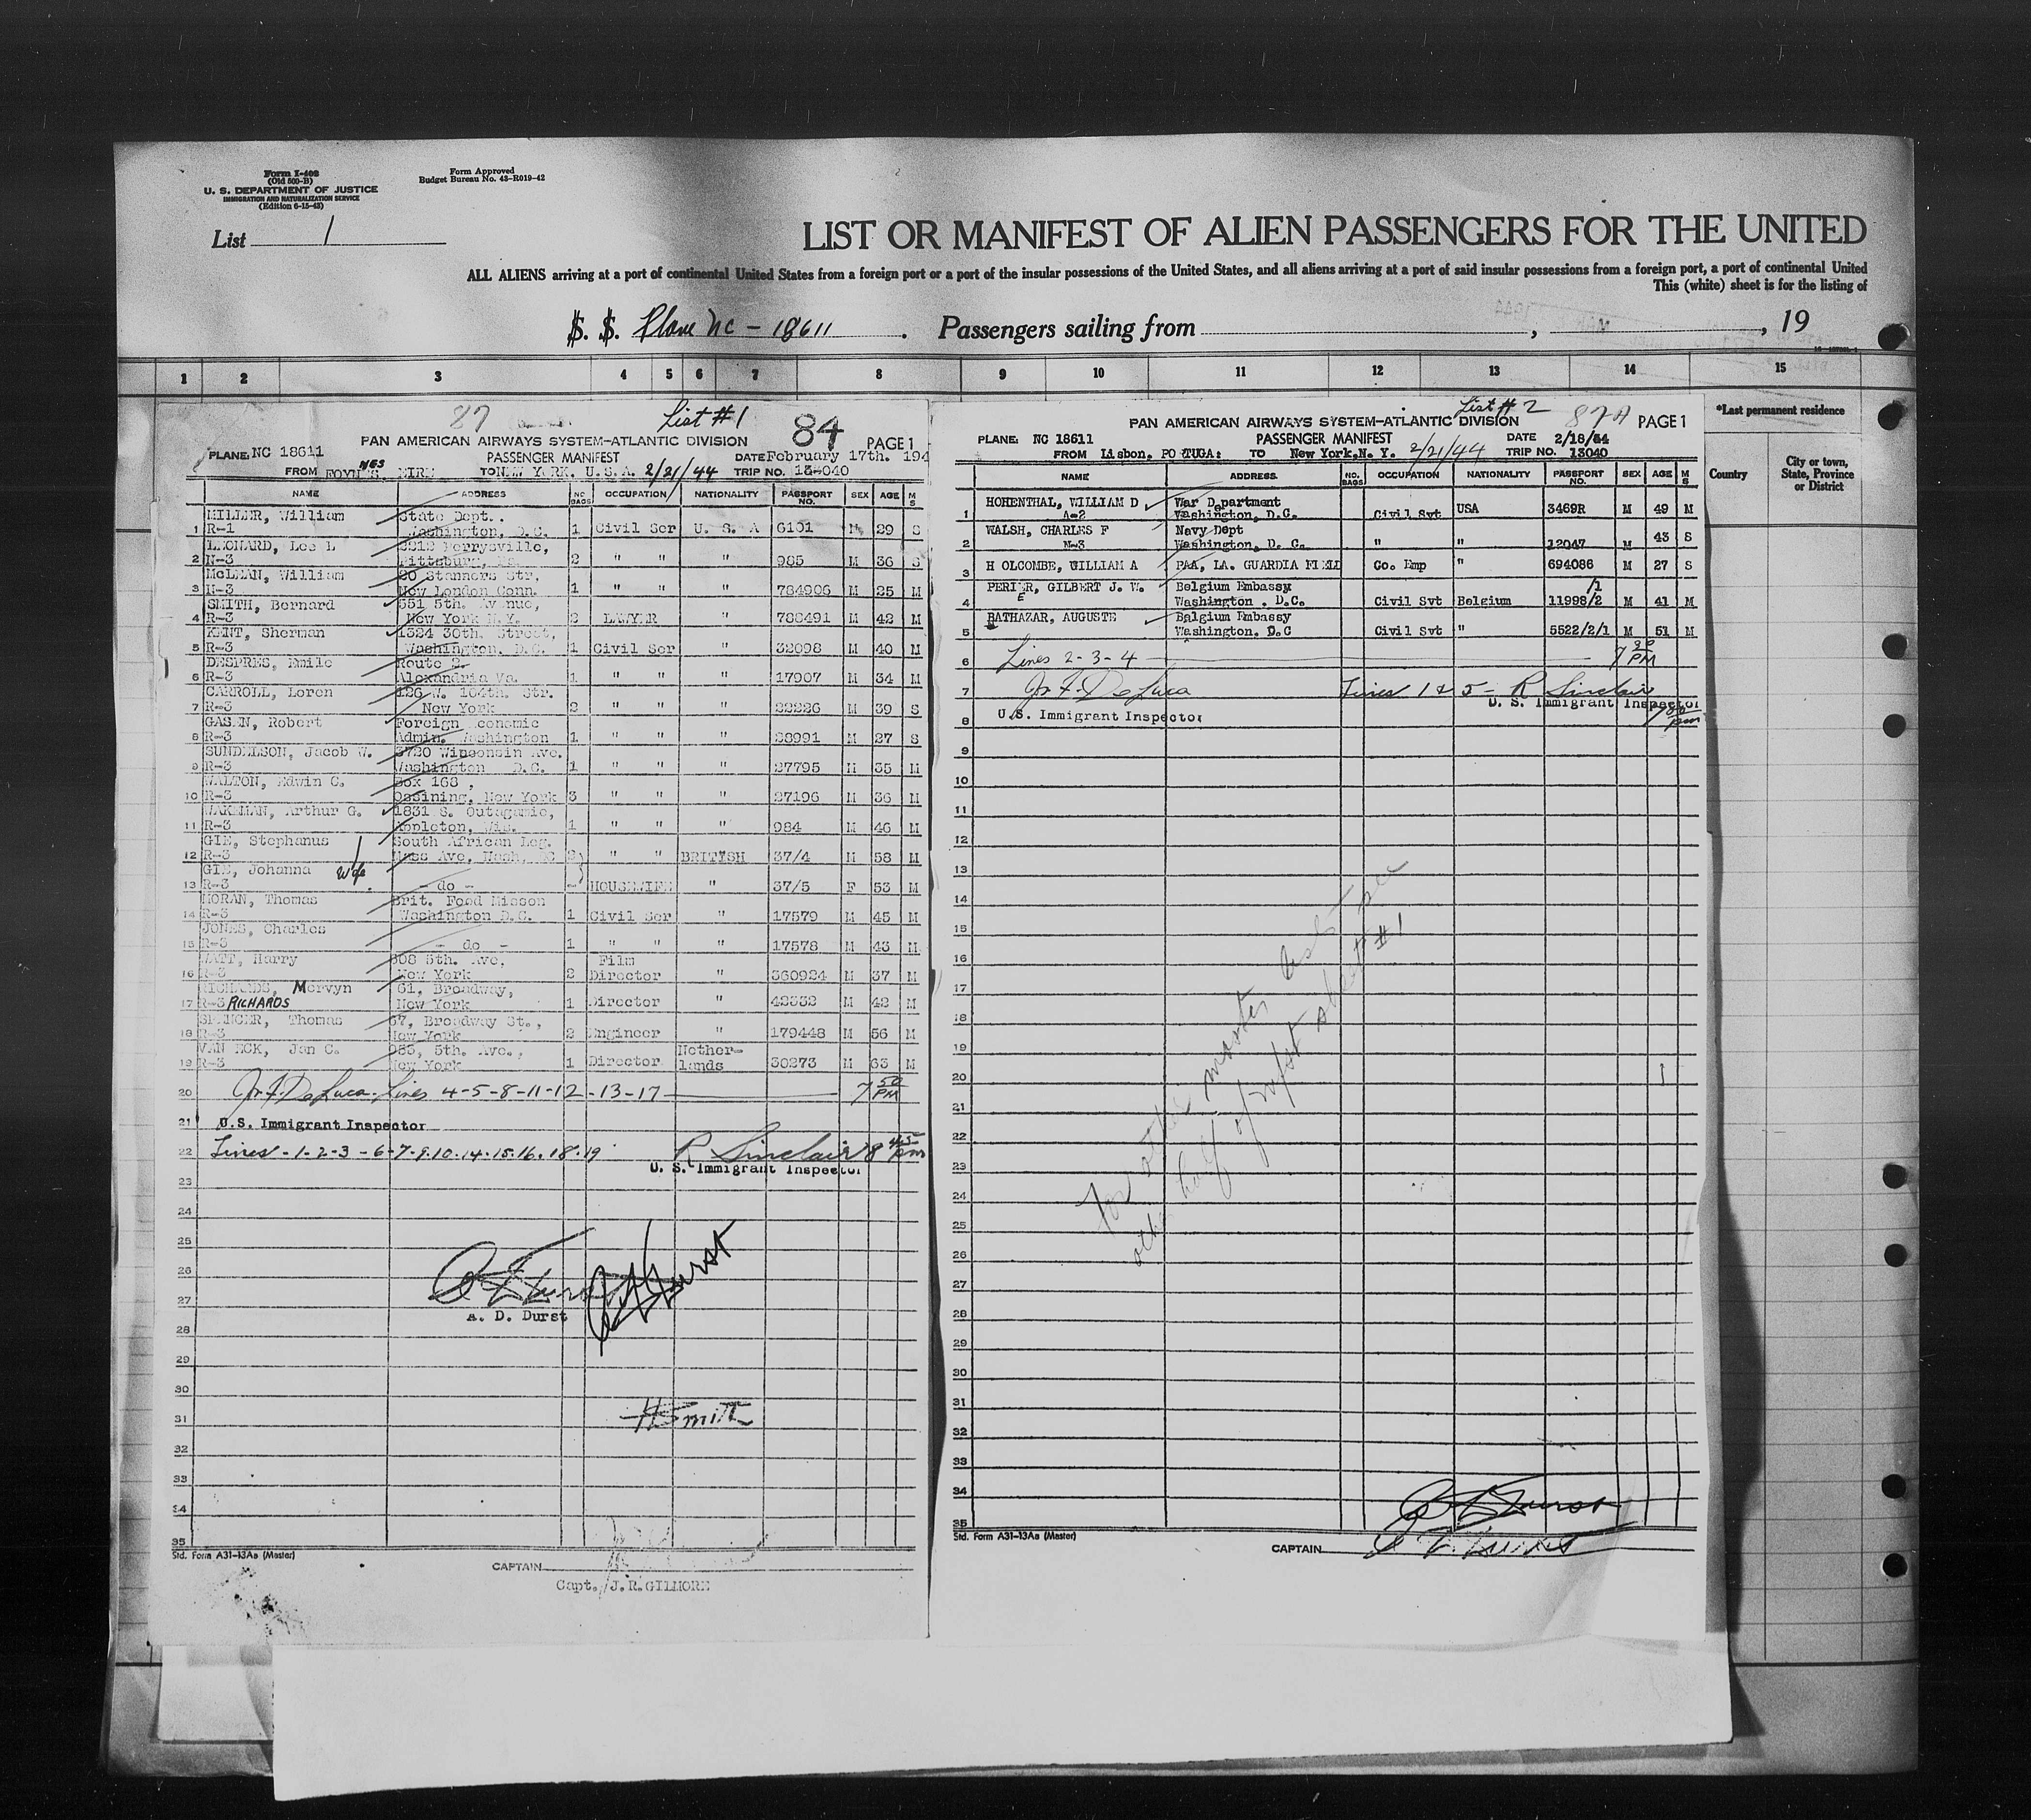 Form I-408
(Old 500-B)
U. S. DEPARTMENT OF JUSTICE
IMMIGRATION AND NATURALIZATION SERVICE
(Edition 6-15-43)
Form Approved
Budget Bureau No. 43-R019-42
List 1
LIST OR MANIFEST OF ALIEN PASSENGERS FOR THE UNITED
ALL ALIENS arriving at a port of continental United States from a foreign port or a port of the insular possessions of the United States, and all aliens arriving at a port of said insular possessions from a foreign port, a port of continental United
This (white) sheet is for the listing of
S. S. Plane NC - 18611 . Passengers sailing from , , 19
1 2 3 4 5 6 7 8 9 10 11 12 13 14 15
*Last permanent residence
Country
City or town, State, Province or District
87 List #1 84
PAN AMERICAN AIRWAYS SYSTEM-ATLANTIC DIVISION PAGE 1
PLANE: NC 18611 PASSENGER MANIFEST DATE February 17th. 194
FROM FOYNES, EIRE TO NEW YORK, U.S.A. 2/21/44 TRIP NO. 13040
NAME ADDRESS NO BAGS OCCUPATION NATIONALITY PASSPORT NO. SEX AGE M S
MILLER, William State Dept.
1 R-1 Washington, D.C. 1 Civil Ser U. S. A 6101 M 29 S
LEONARD, Lee L 3212 Perrysville,
2 N-3 Pittsburg, Pa. 2 " " " 985 M 36 S
McLEAN, William 20 Stanners Str,
3 N-3 New London Conn. 1 " " " 784906 M 25 M
SMITH, Bernard 551 5th. Avenue,
4 R-3 New York N.Y. 2 LAWYER " 788491 M 42 M
KENT, Sherman 1324 30th. Street,
5 R-3 Washington, D.C. 1 Civil Ser " 32098 M 40 M
DESPRES, Emile Route 2.
6 R-3 Alexandria Va. 1 " " " 17907 M 34 M
CARROLL, Loren 126 W. 104th. Str.
7 R-3 New York 2 " " " 22226 M 39 S
GASEN, Robert Foreign Economic
8 R-3 Admin. Washington 1 " " " 28991 M 27 S
SUNDELSON, Jacob W. 3720 Winconsin Ave.
9 R-3 Washington D.C. 1 " " " 27795 M 35 M
WALTON, Edwin C. Box 168,
10 R-3 Ossining, New York 3 " " " 27196 M 36 M
WAKEMAN, Arthur G. 1831 S. Outagamie,
11 R-3 Appleton, Wis. 1 " " " 984 M 46 M
GIE, Stephanus South African Leg.
12 R-3 Mass Ave, Wash, DC 2 " " BRITISH 37/4 M 58 M
GIE, Johanna Wife
13 R-3 - do - - HOUSEWIFE " 37/5 F 53 M
MORAN, Thomas Brit. Food Misson
14 R-3 Washington D.C. 1 Civil Ser " 17579 M 45 M
JONES, Charles
15 R-3 - do - 1 " " " 17578 M 43 M
WATT, Harry 308 5th. Ave, Film
16 R-3 New York 2 Director " 360924 M 37 M
RICHARDS, Mervyn 61, Broadway,
17 R-3 RICHARDS New York 1 Director " 42332 M 42 M
SPENCER, Thomas 67, Broadway St.,
18 R-3 New York 2 Engineer " 179448 M 56 M
VAN ECK, Jan C. 985, 5th. Ave., Nether-
19 R-3 New York 1 Director lands 30273 M 63 M
20 Jn. F. De Luca - Lines 4-5-8-11-12-13-17 7 50 PM
21 U.S. Immigrant Inspector
22 Lines -1-2-3-6-7-9-10-14-15-16-18-19 R Sinclair 8 45 pm
U. S. Immigrant Inspector
23
24
25
26
27
A. D. Durst
28
29
30
31 H Smith
32
33
34
35
Std. Form A31-13Aa (Master)
CAPTAIN
Capt. J.R. GILMORE
List #2 87A
PAN AMERICAN AIRWAYS SYSTEM-ATLANTIC DIVISION PAGE 1
PLANE: NC 18611 PASSENGER MANIFEST DATE 2/18/44
FROM Lisbon. PO TUGA: TO New York, N. Y. 2/21/44 TRIP NO. 13040
NAME ADDRESS. NO. BAGS OCCUPATION NATIONALITY PASSPORT NO. SEX AGE M S
HOHENTHAL, WILLIAM D War Department
1 A-2 Washington, D.C. Civil Svt USA 3469R M 49 M
WALSH, CHARLES F Navy Dept
2 N-3 Washington, D. C. " " 12047 M 43 S
3 H OLCOMBE, WILLIAM A PAA, LA. GUARDIA FIELD Co. Emp " 694086 M 27 S
PERIER, GILBERT J. W. Belgium Embassy
4 E Washington . D.C. Civil Svt Belgium 11998/2 /1 M 41 M
BATHAZAR, AUGUSTE Balgium Embassy
5 Washington. D.C Civil Svt " 5522/2/1 M 51 M
6 Lines 2-3-4 7 30 PM
7 Jn. F. De Luca Lines 1 & 5 - R Sinclair
8 U.S. Immigrant Inspector U. S. Immigrant Inspector pm
9
10
11
12
13
14
15
16
17
18
19
20
21
22
23
24
25
26
27
28
29
30
31
32
33
34
35
For other master list see
other half of m/fst sheet #1
Std. Form A31-13Aa (Master)
CAPTAIN